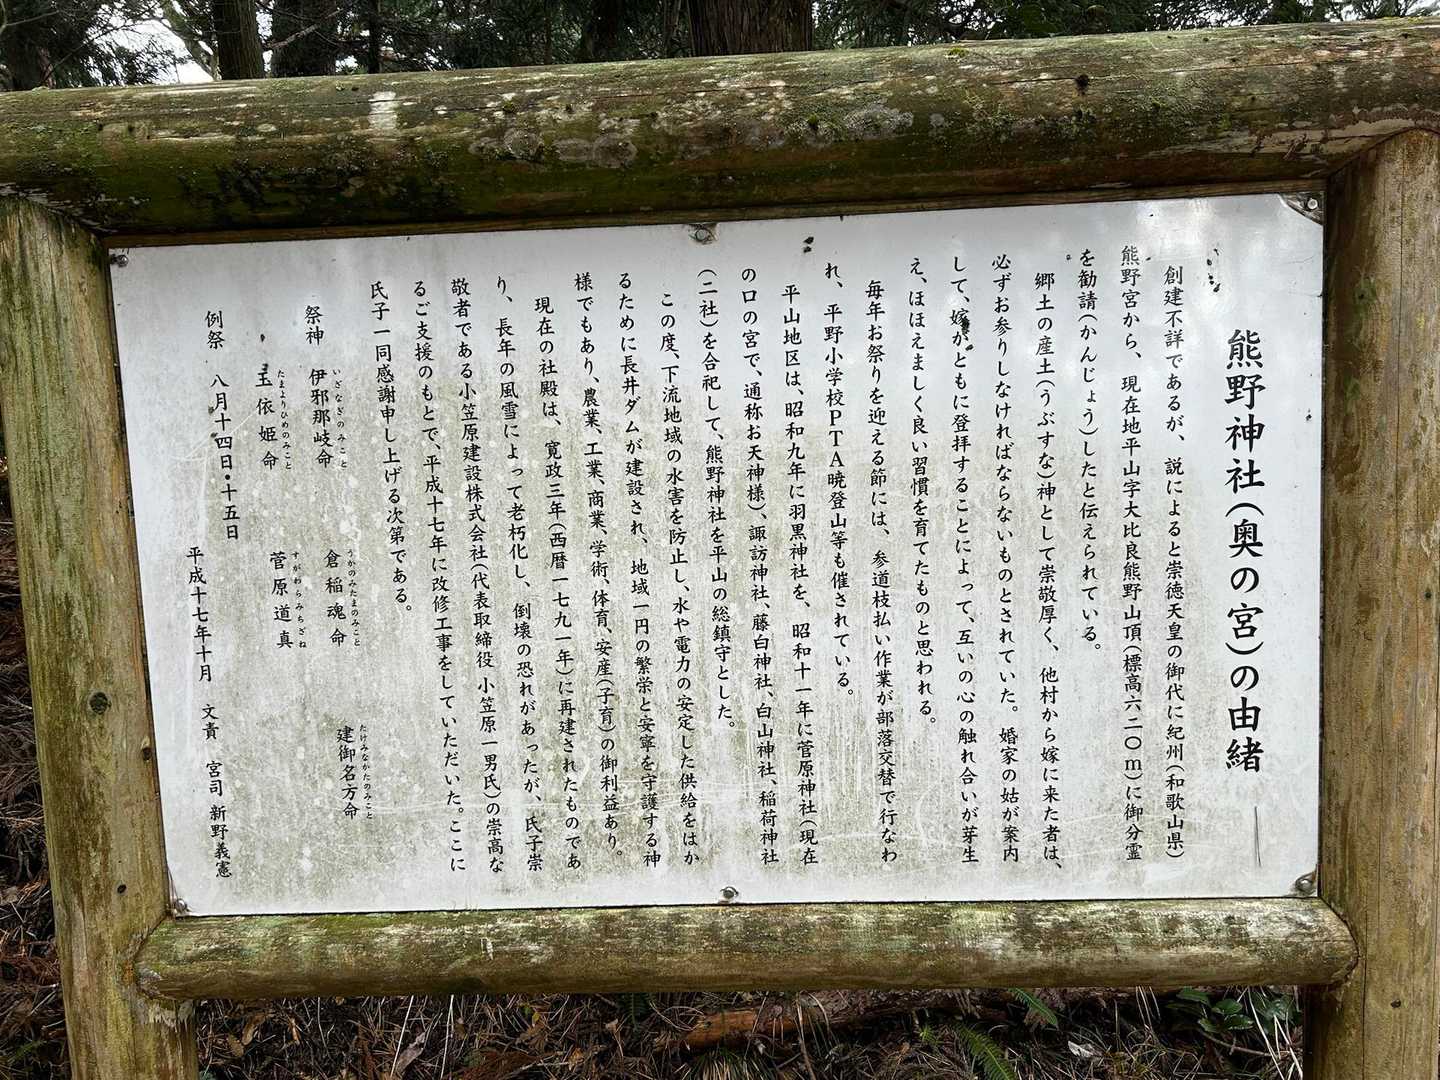 熊野神社(奥の宮)の由緒
創建不詳であるが、説によると崇徳天皇の御代に紀州(和歌山県)
熊野宮から、現在地平山字大比良熊野山頂(標高六二〇m)に御分霊
を勧請(かんじょう)したと伝えられている。
郷土の産土(うぶすな)神として崇敬厚く、他村から嫁に来た者は、
必ずお参りしなければならないものとされていた。婚家の姑が案内
して、嫁がともに登拝することによって、互いの心の触れ合いが芽生
え、ほほえましく良い習慣を育てたものと思われる。
毎年お祭りを迎える節には、参道枝払い作業が部落交替で行なわ
れ、平野小学校PTA暁登山等も催されている。
平山地区は、昭和九年に羽黒神社を、昭和十一年に菅原神社(現在
の口の宮で、通称お天神様)、諏訪神社、藤白神社、白山神社、稲荷神社
(二社)を合祀して、熊野神社を平山の総鎮守とした。
この度、下流地域の水害を防止し、水や電力の安定した供給をはか
るために長井ダムが建設され、地域一円の繁栄と安寧を守護する神
様でもあり、農業、工業、商業、学術、体育、安産(子育)の御利益あり。
現在の社殿は、寛政三年(西暦一七九一年)に再建されたものであ
り、長年の風雪によって老朽化し、倒壊の恐れがあったが、氏子崇
敬者である小笠原建設株式会社(代表取締役 小笠原一男氏)の崇高な
るご支援のもとで、平成十七年に改修工事をしていただいた。ここに
氏子一同感謝申し上げる次第である。
祭神 伊邪那岐命 倉稲魂命 建御名方命
いざなぎのみこと うかのみたまのみこと たけみなかたのみこと
玉依姫命 菅原道真
たまよりひめのみこと すがわらみちざね
例祭 八月十四日・十五日
平成十七年十月 文責 宮司 新野義憲